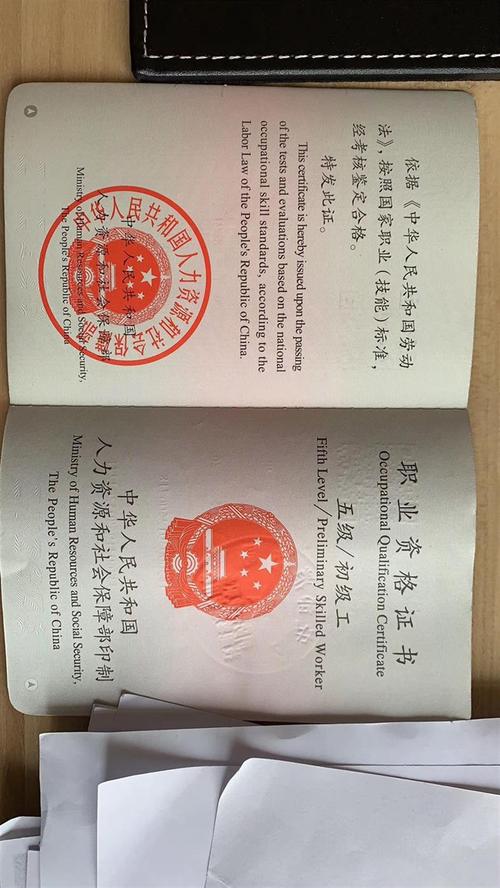 依据《中华人民共和国劳动
法》，按照国家职业（技能）标准，
经考核鉴定合格。
特发此证。
This certificate is hereby issued upon the passing
of the tests and evaluations based on the national
occupational skill standards, according to the
Labor Law of the People's Republic of China.
中华人民共和国
人力资源和社会保障部
Ministry of Human Resources and Social Security,
The People's Republic of China
中华人民共和国人力资源和社会保障部
职业资格证书
Occupational Qualification Certificate
五级/初级工
Fifth Level/Preliminary Skilled Worker
中华人民共和国
人力资源和社会保障部印制
Ministry of Human Resources and Social Security,
The People's Republic of China